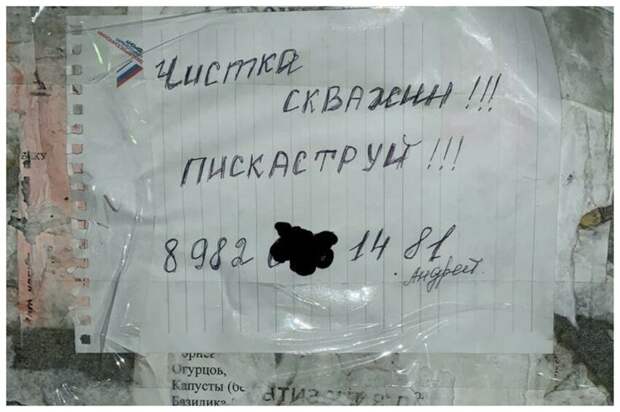 Чистка
скважин!!!
пискаструй!!!
8 982 14 81
Андрей
Огурцов,
Капусты
Базилика